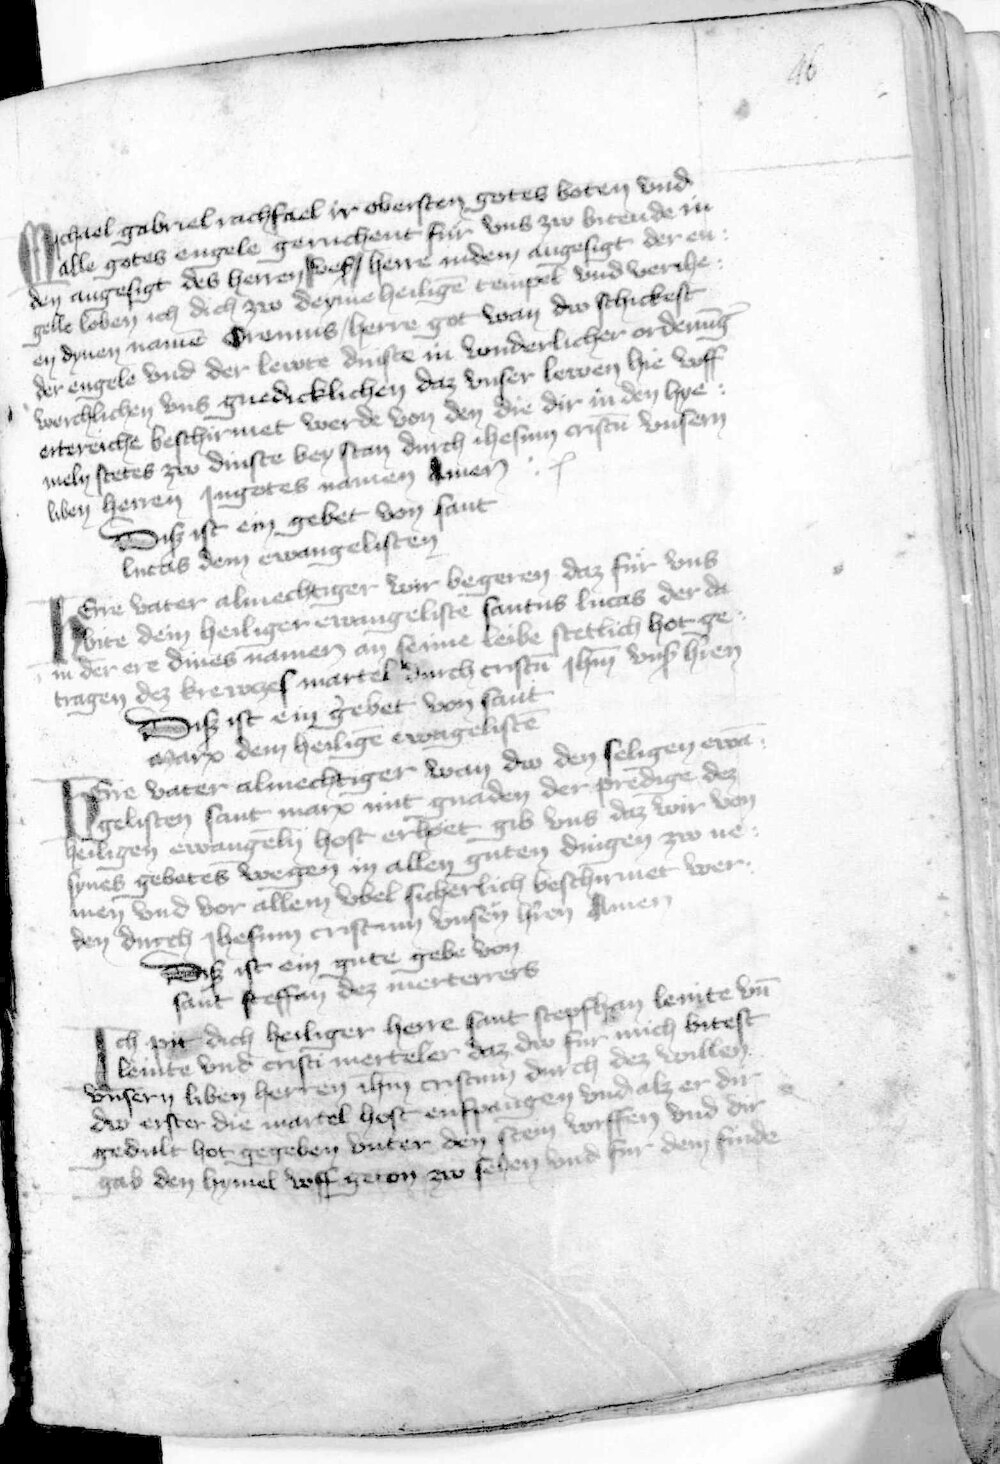 46
Michael gabriel rachfael ir obersten gotes boten vnd
alle gotes engele geruchent für vns zw bitende in
den angesigt des herren herre indem angesigt der en:
gelle loben ich dich zw deyme heiligē tempel vnd veriche:
en dynen namē Oremus herre got wan dw schickest
der engele vnd der lewte dinste in wnderlicher ordenūg
werchlichen vns gnedicklichen daz vnser lewen hie vff
ertereiche beschirmet werde von den die dir in den hye:
meln stetes zw dinste bey stan durch ihesum cristū vnsern
liben herren Jngotes namen Amen
Diß ist ein gebet von sant
lucas dem ewangelisten
HErre vater almechtiger wir begeren daz für vns
bite dein heiliger ewangelistē santus lucas der da
in der ere dines namen an seime leibe stetlich hot ge:
tragen dez krewczes martel durch cristū ihm̄ vnsꝰ hren
Diß ist ein gebet von sant
marx dem heiligē ewagelistē
HErre vater almechtiger wan dw den seligen ewā:
gelisten sant marx mit gnaden der predige dez
heiligen ewangelij host erhoet gib vns daz wir von
synes gebetes wegen in allen guten dingen zw ne:
men vnd vor allem vbel sicherlich beschirmet wer:
den durch Jhesum cristum vnsen hren Amen
Diß ist ein gute gebe von
sant steffan dez merterrers
Ich pit dich heiliger herre sant stepfhan leuite vn̄
leuite vnd cristi merteler daz dw für mich bitest
vnsern liben herren ihm cristum durch dez willen
dw erster die martel host enpfangen vnd alz er dir
gedult hot gegeben vnter den stein wrffen vnd dir
gab den hymel vff geton zw sehen vnd für dem finde